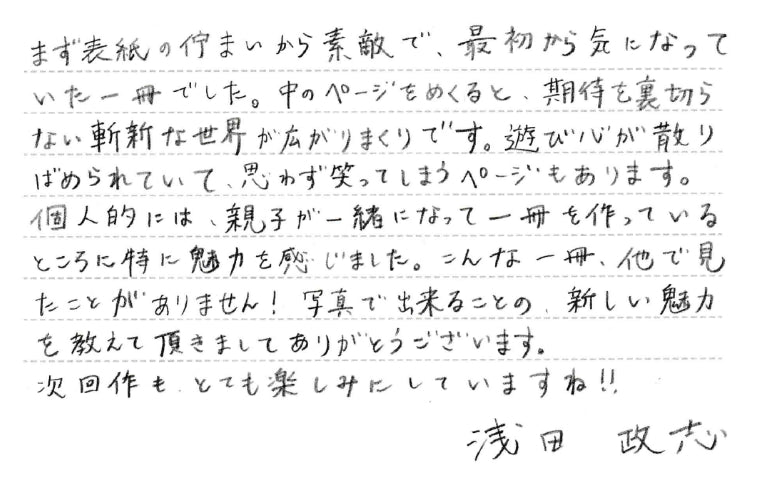 まず表紙の佇まいから素敵で、最初から気になって
いた一冊でした。中のページをめくると、期待を裏切ら
ない斬新な世界が広がりまくりです。遊び心が散り
ばめられていて、思わず笑ってしまうページもあります。
個人的には、親子が一緒になって一冊を作っている
ところに特に魅力を感じました。こんな一冊、他で見
たことがありません！写真で出来ることの、新しい魅力
を教えて頂きましてありがとうございます。
次回作も、とても楽しみにしていますね!!
浅田 政志